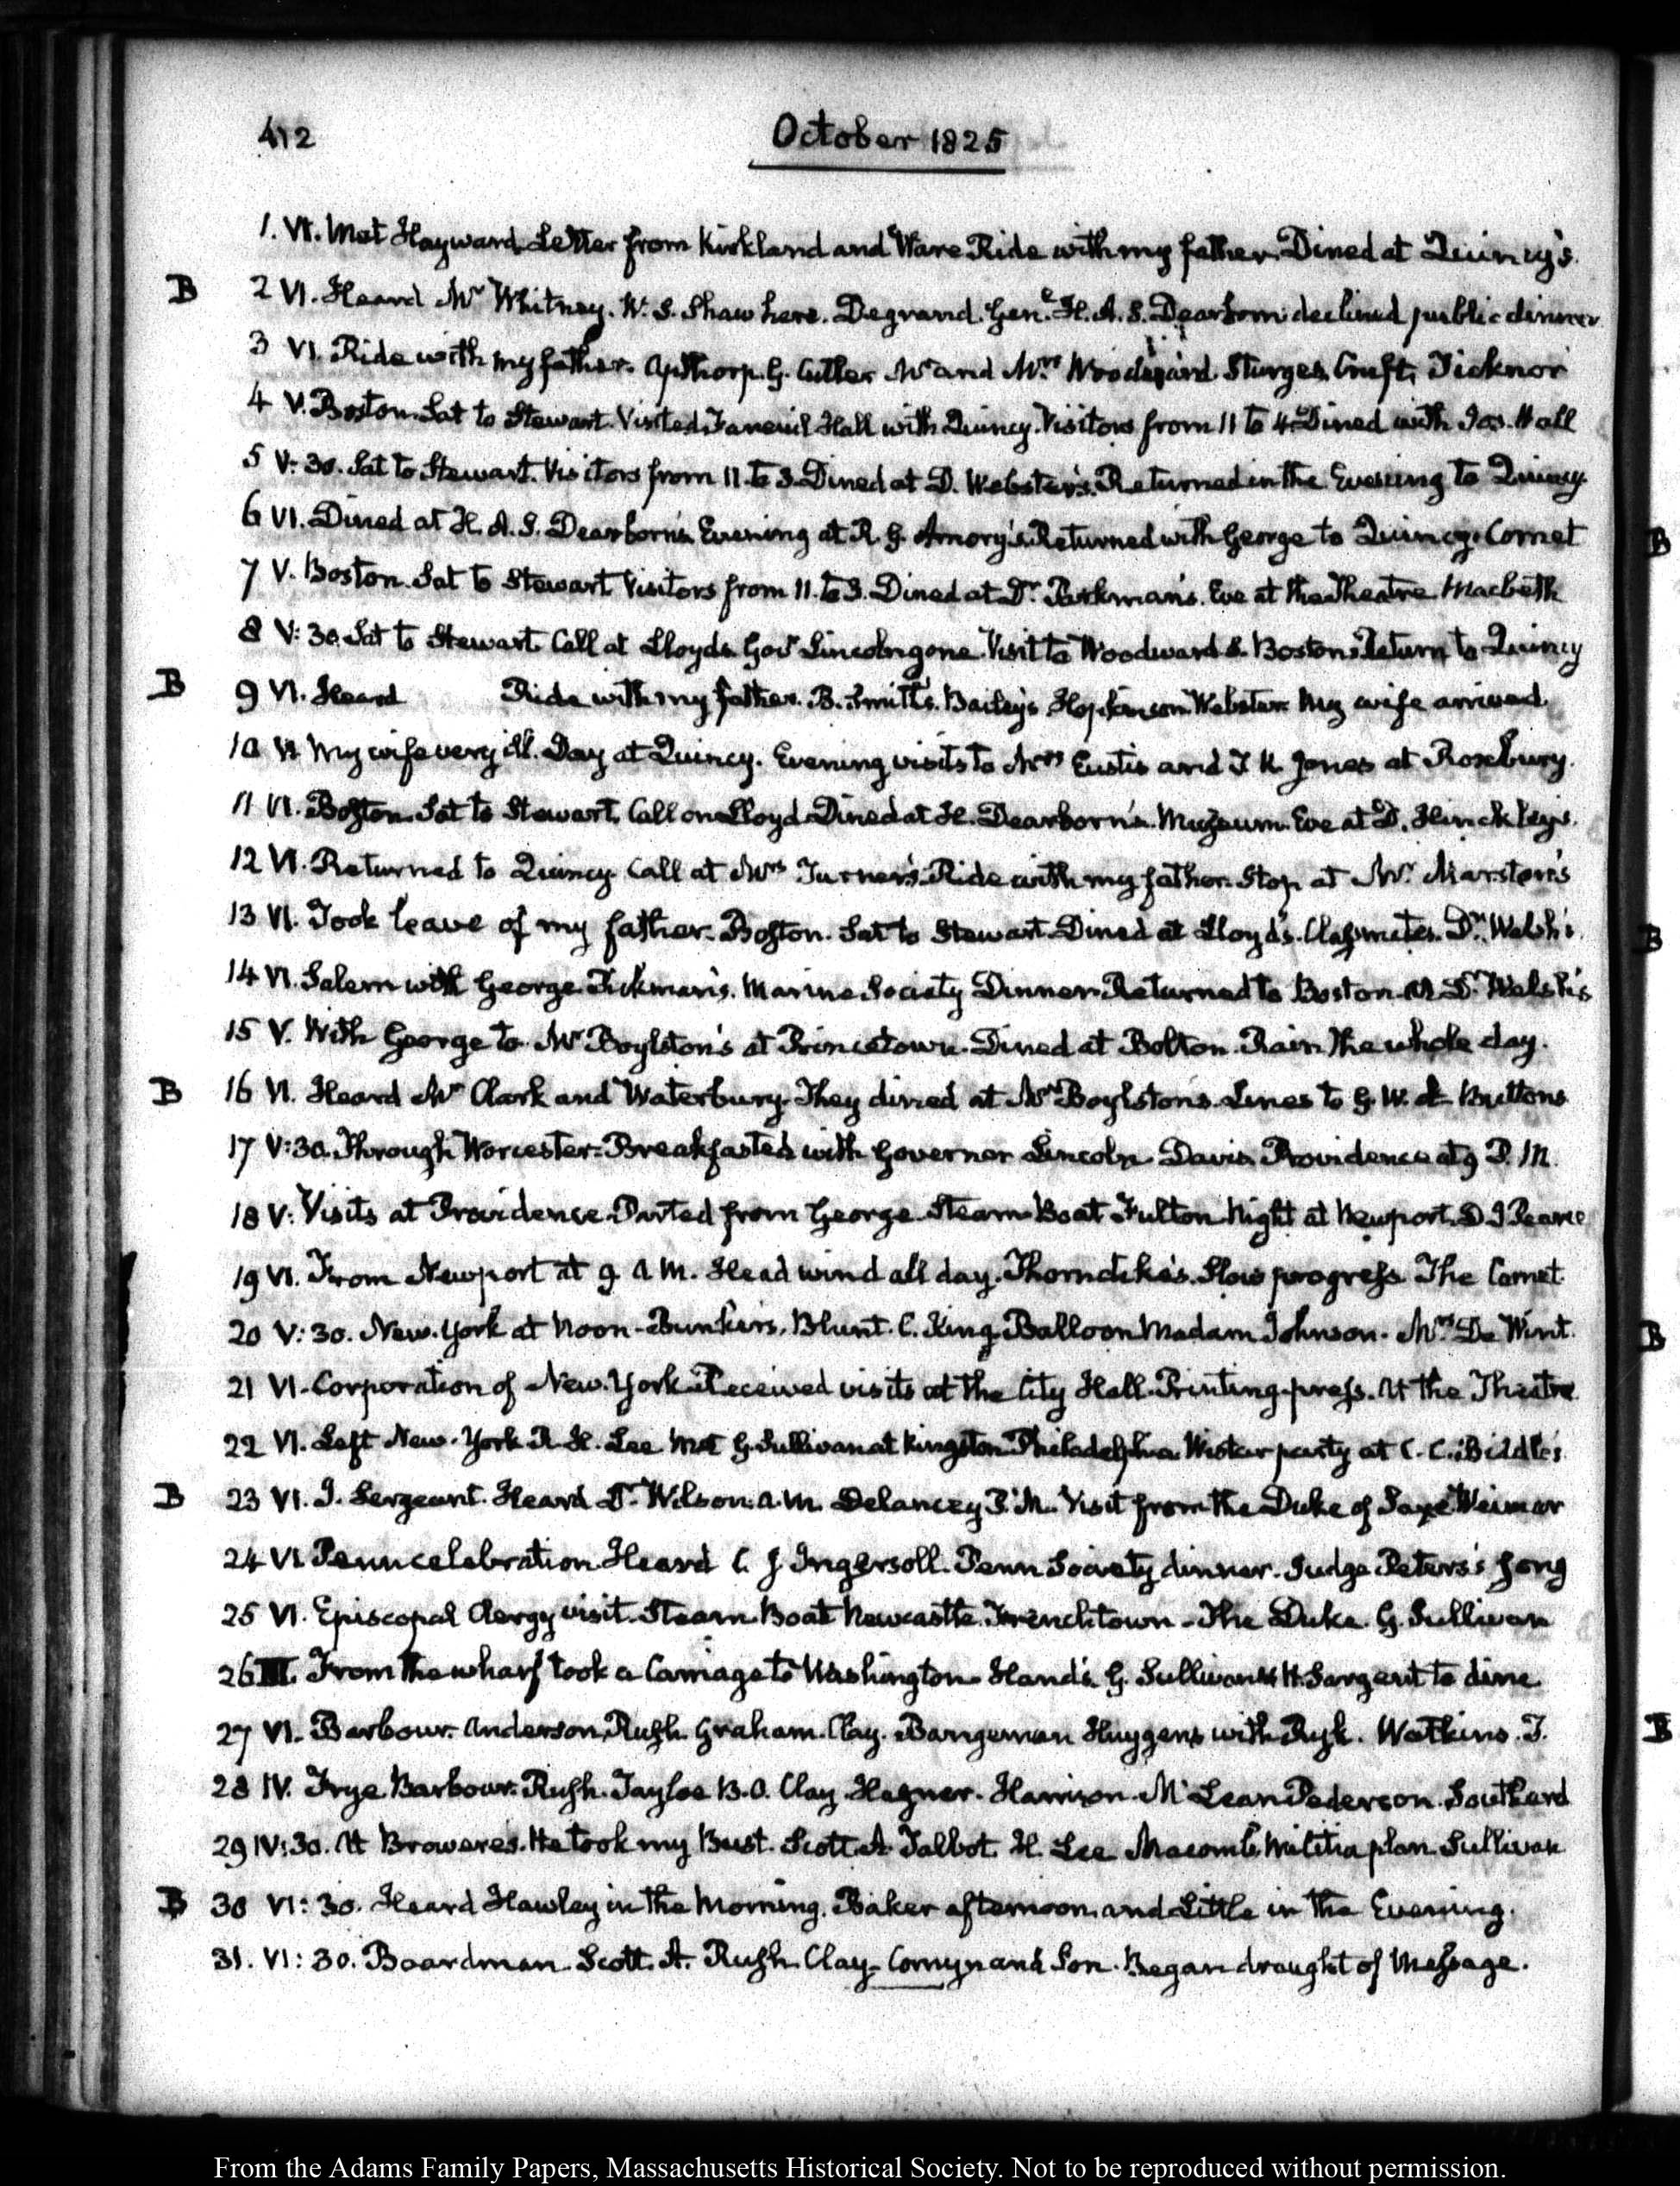 412
October 1825
1. VI. Met Hayward Letter from Kirkland and Ware Ride with my father. Dined at Quincy's.
B 2 VI. Heard Mr Whitney. W. S. Shaw here. Degrand. Genl. H. A. S. Dearborn declined public dinner
3 VI. Ride with my father. Apthorp. G. Cutler Mr and Mrs Woodward. Sturges. Cruft, Ticknor
4 V. Boston. Sat to Stewart. Visited Faneuil Hall with Quincy. Visitors from 11 to 4 Dined with Jos. Hall
5 V:30. Sat to Stewart. Visitors from 11 to 3. Dined at D. Webster's. Returned in the Evening to Quincy
6 VI. Dined at H. A. S. Dearborn's. Evening at R. G. Amory's. Returned with George to Quincy. Comet
7 V. Boston. Sat to Stewart Visitors from 11. to 3. Dined at Dr. Parkman's. Eve at the Theatre Macbeth
8 V:30. Sat to Stewart. Call at Lloyds. Govr Lincoln gone. Visit to Woodward S. Boston. Return to Quincy
B 9 VI. Heard Ride with my father. B. Smith's. Bailey's Hopkinson Webster. My wife arrived.
10 VI My wife very ill. Day at Quincy. Evening visits to Mrs Eustis and T K Jones at Roxbury.
11 VI. Boston. Sat to Stewart. Call on Lloyd Dined at H. Dearborn's. Museum. Eve at D. Hinckley's.
12 VI. Returned to Quincy. Call at Mrs Turner's. Ride with my father. Stop at Mr. Marston's
13 VI. Took leave of my father. Boston. Sat to Stewart. Dined at Lloyd's. Classmates. Dr. Welsh's.
14 VI. Salem with George. Pickman's. Marine Society Dinner. Returned to Boston. At Dr. Welsh's
15 V. With George to Mr Boylston's at Princetown. Dined at Bolton. Rain the whole day.
B 16 VI. Heard Mr Clark and Waterbury. They dined at Mr Boylston's. Lines to G. W. & Buttons
17 V:30. Through Worcester. Breakfasted with Governor Lincoln Davis. Providence at 9 P. M.
18 V: Visits at Providence. Parted from George. Steam Boat Fulton Night at Newport. D J Pearce
19 VI. From Newport at 9 A M. Head wind all day. Thorndike's. Slow progress. The Comet
20 V:30. New-York at Noon. Bunker's, Blunt. C. King. Balloon Madam Johnson. Mrs De Wint.
21 VI. Corporation of New-York. Received visits at the City Hall. Printing-press. At the Theatre
22 VI. Left New-York R. H. Lee Met G. Sullivan at Kingston. Philadelphia Wistar party at C. C. Biddle's
B 23 VI. J. Sergeant. Heard Dr Wilson. A.M. Delancey P. M. Visit from the Duke of Saxe Weimar
24 VI. Penn celebration Heard C. J Ingersoll. Penn Society dinner. Judge Peters's Song
25 VI. Episcopal Clergy visit. Steam Boat Newcastle. Frenchtown. The Duke. G. Sullivan
26 III. From the wharf took a Carriage to Washington. Hand's. G. Sullivan & H. Sargent to dine
27 VI. Barbour. Anderson, Rush. Graham. Clay. Bangeman Huygens with Ryk. Watkins. T.
28 IV. Frye Barbour. Rush. Tayloe B. O. Clay. Hagner. Harrison. McLean Pederson. Southard
29 IV:30. At Browere's. He took my Bust. Scott. A. Talbot. H. Lee Macomb, Militia plan Sullivan
B 30 VI:30. Heard Hawley in the Morning. Baker afternoon and Little in the Evening.
31. VI:30. Boardman. Scott. A. Rush. Clay. Comyn and Son. Began draught of Message.
B
B
B
B
From the Adams Family Papers, Massachusetts Historical Society. Not to be reproduced without permission.